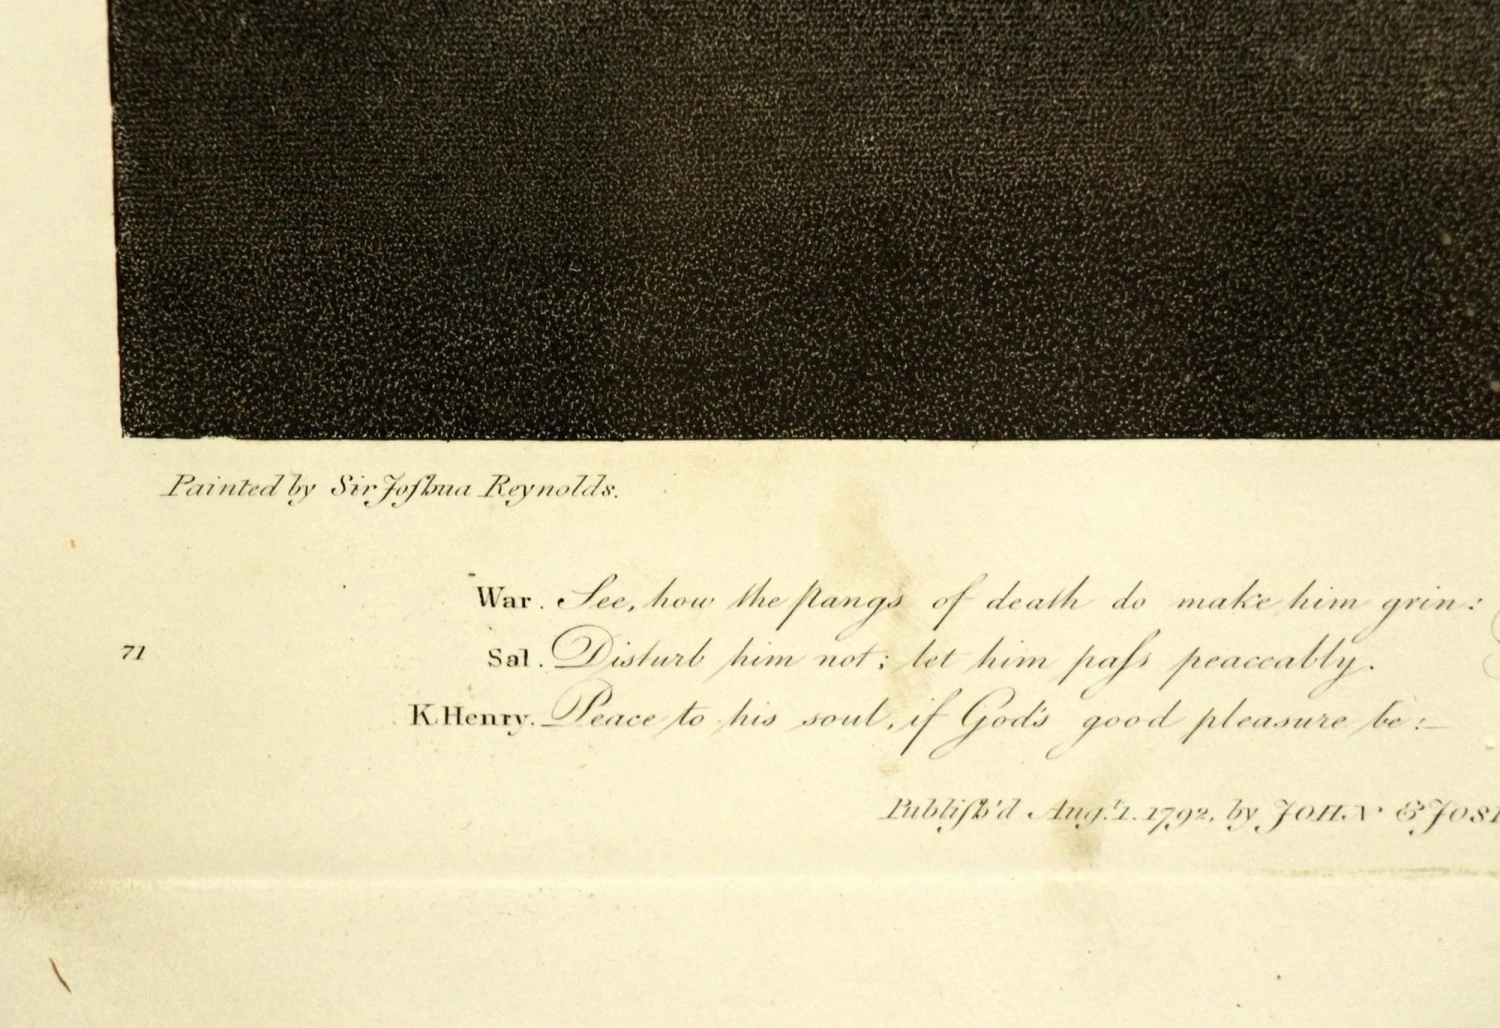 Painted by Sir Joſhua Reynolds.
War. See, how the pangs of death do make him grin:
71
Sal. Disturb him not; let him paſs peaceably.
K. Henry. Peace to his soul, if God's good pleasure be:—
Publiſh'd Aug.t 1. 1792. by JOHN & JOSI